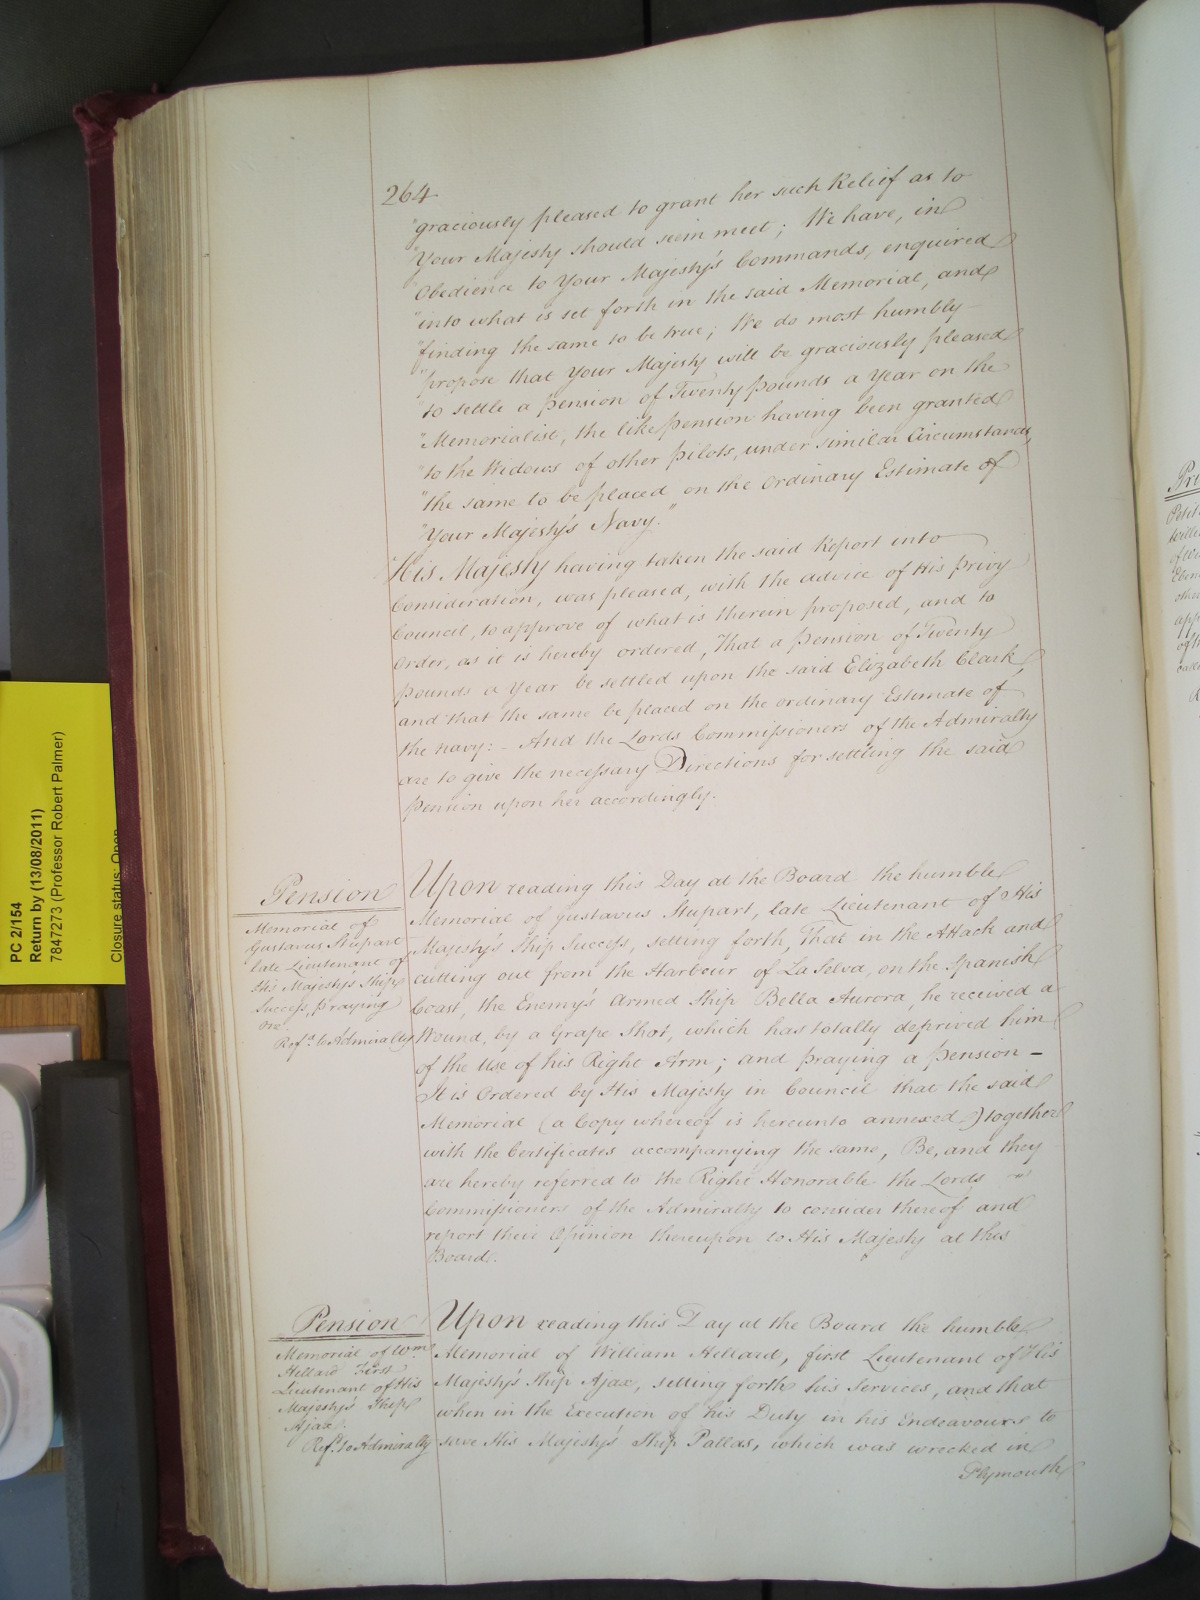 264
"graciously pleased to grant her such Relief as to
"Your Majesty should seem meet; We have, in
"Obedience to Your Majesty's Commands, enquired
"into what is set forth in the said Memorial, and
"finding the same to be true; We do most humbly
"propose that Your Majesty will be graciously pleased
"to settle a Pension of Twenty Pounds a Year on the
"Memorialist, the like Pension having been granted
"to the Widows of other Pilots, under similar Circumstances,
"the same to be placed on the Ordinary Estimate of
"Your Majesty's Navy."
His Majesty having taken the said Report into
Consideration, was pleased, with the advice of His Privy
Council, to approve of what is therein proposed, and to
Order, as it is hereby ordered, That a Pension of Twenty
Pounds a Year be settled upon the said Elizabeth Clark,
and that the same be placed on the ordinary Estimate of
the Navy: - And the Lords Commissioners of the Admiralty
are to give the necessary Directions for settling the said
Pension upon her accordingly.
Pension
Memorial of
Gustavus Stupart
late Lieutenant of
His Majesty's Ship
Success, praying
Ref.d to Admiralty
Upon reading this Day at the Board the humble
Memorial of Gustavus Stupart, late Lieutenant of His
Majesty's Ship Success, setting forth, That in the Attack and
cutting out from the Harbour of La Selva, on the Spanish
Coast, the Enemy's Armed Ship Bella Aurora, he received a
Wound, by a Grape Shot, which has totally deprived him
of the Use of his Right Arm; and praying a Pension -
It is Ordered by His Majesty in Council that the said
Memorial (a Copy whereof is hereunto annexed) together
with the Certificates accompanying the same, Be, and they
are hereby referred to the Right Honorable the Lords
Commissioners of the Admiralty to consider thereof and
report their Opinion thereupon to His Majesty at this
Board.
Pension
Memorial of Wm
Hellard First
Lieutenant of His
Majesty's Ship
Ajax.
Ref.d to Admiralty
Upon reading this Day at the Board the humble
Memorial of William Hellard, first Lieutenant of His
Majesty's Ship Ajax, setting forth his Services, and that
when in the Execution of his Duty in his Endeavours to
save His Majesty's Ship Pallas, which was wrecked in
Plymouth
PC 2/154
Return by (13/08/2011)
7847273 (Professor Robert Palmer)
Closure status: Open